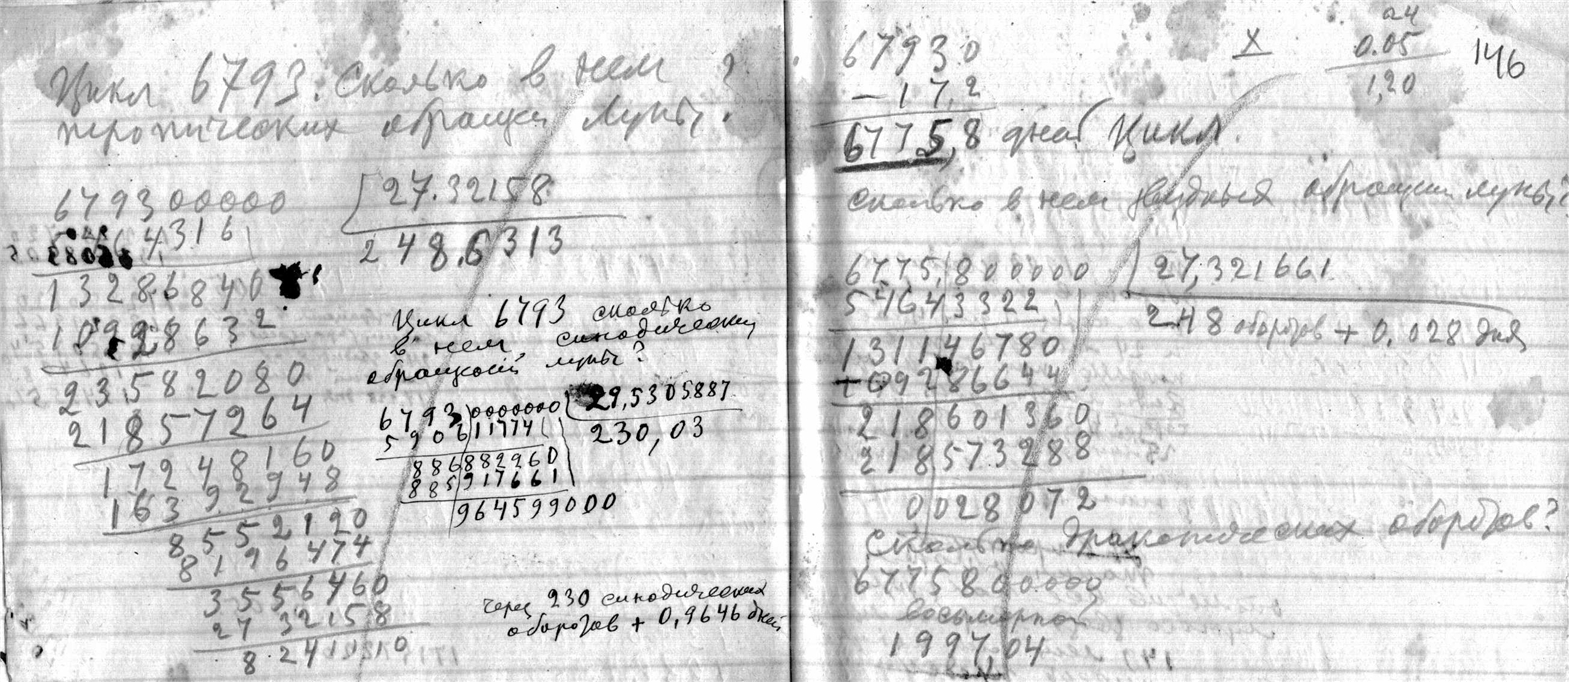 Цикл 6793. Сколько в нем
тропических обращен Луны?
6793000000
27.32158
248.6313
13286840
10928632
23582080
21857264
17248160
16392948
8552120
8196474
3556460
2732158
8241010
Цикл 6793 сколько
в нем синодических
обращений луны?
67930000000
29,5305887
59061 1774
230,03
886882260
885917661
964599000
через 230 синодических
оборотов + 0,9646 дней
67930
- 17.2
6775,8 дней Цикл.
X
24
0.05
1,20
146
Сколько в нем звездных обращен луны?
6775,800000
27,321661
54643322
248 оборотов + 0,028 дня
131146780
109286644
218601360
218573288
0028072
Сколько драконических оборотов?
6775800000
199704